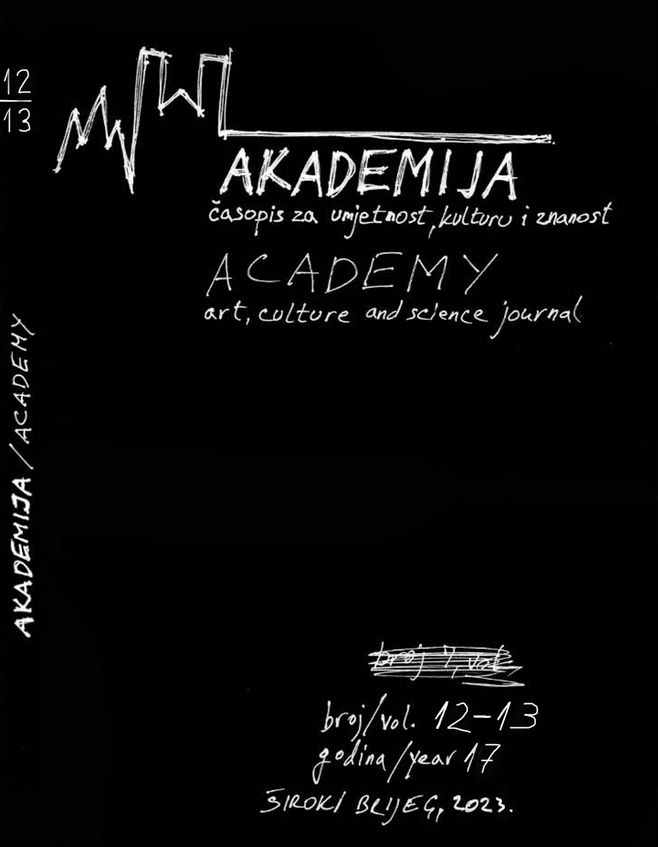 12
13
AKADEMIJA
časopis za umjetnost, kulturu i znanost
ACADEMY
art, culture and science journal
AKADEMIJA / ACADEMY
broj 7, vol.
broj/vol. 12-13
godina/year 17
ŠIROKI BRIJEG, 2023.